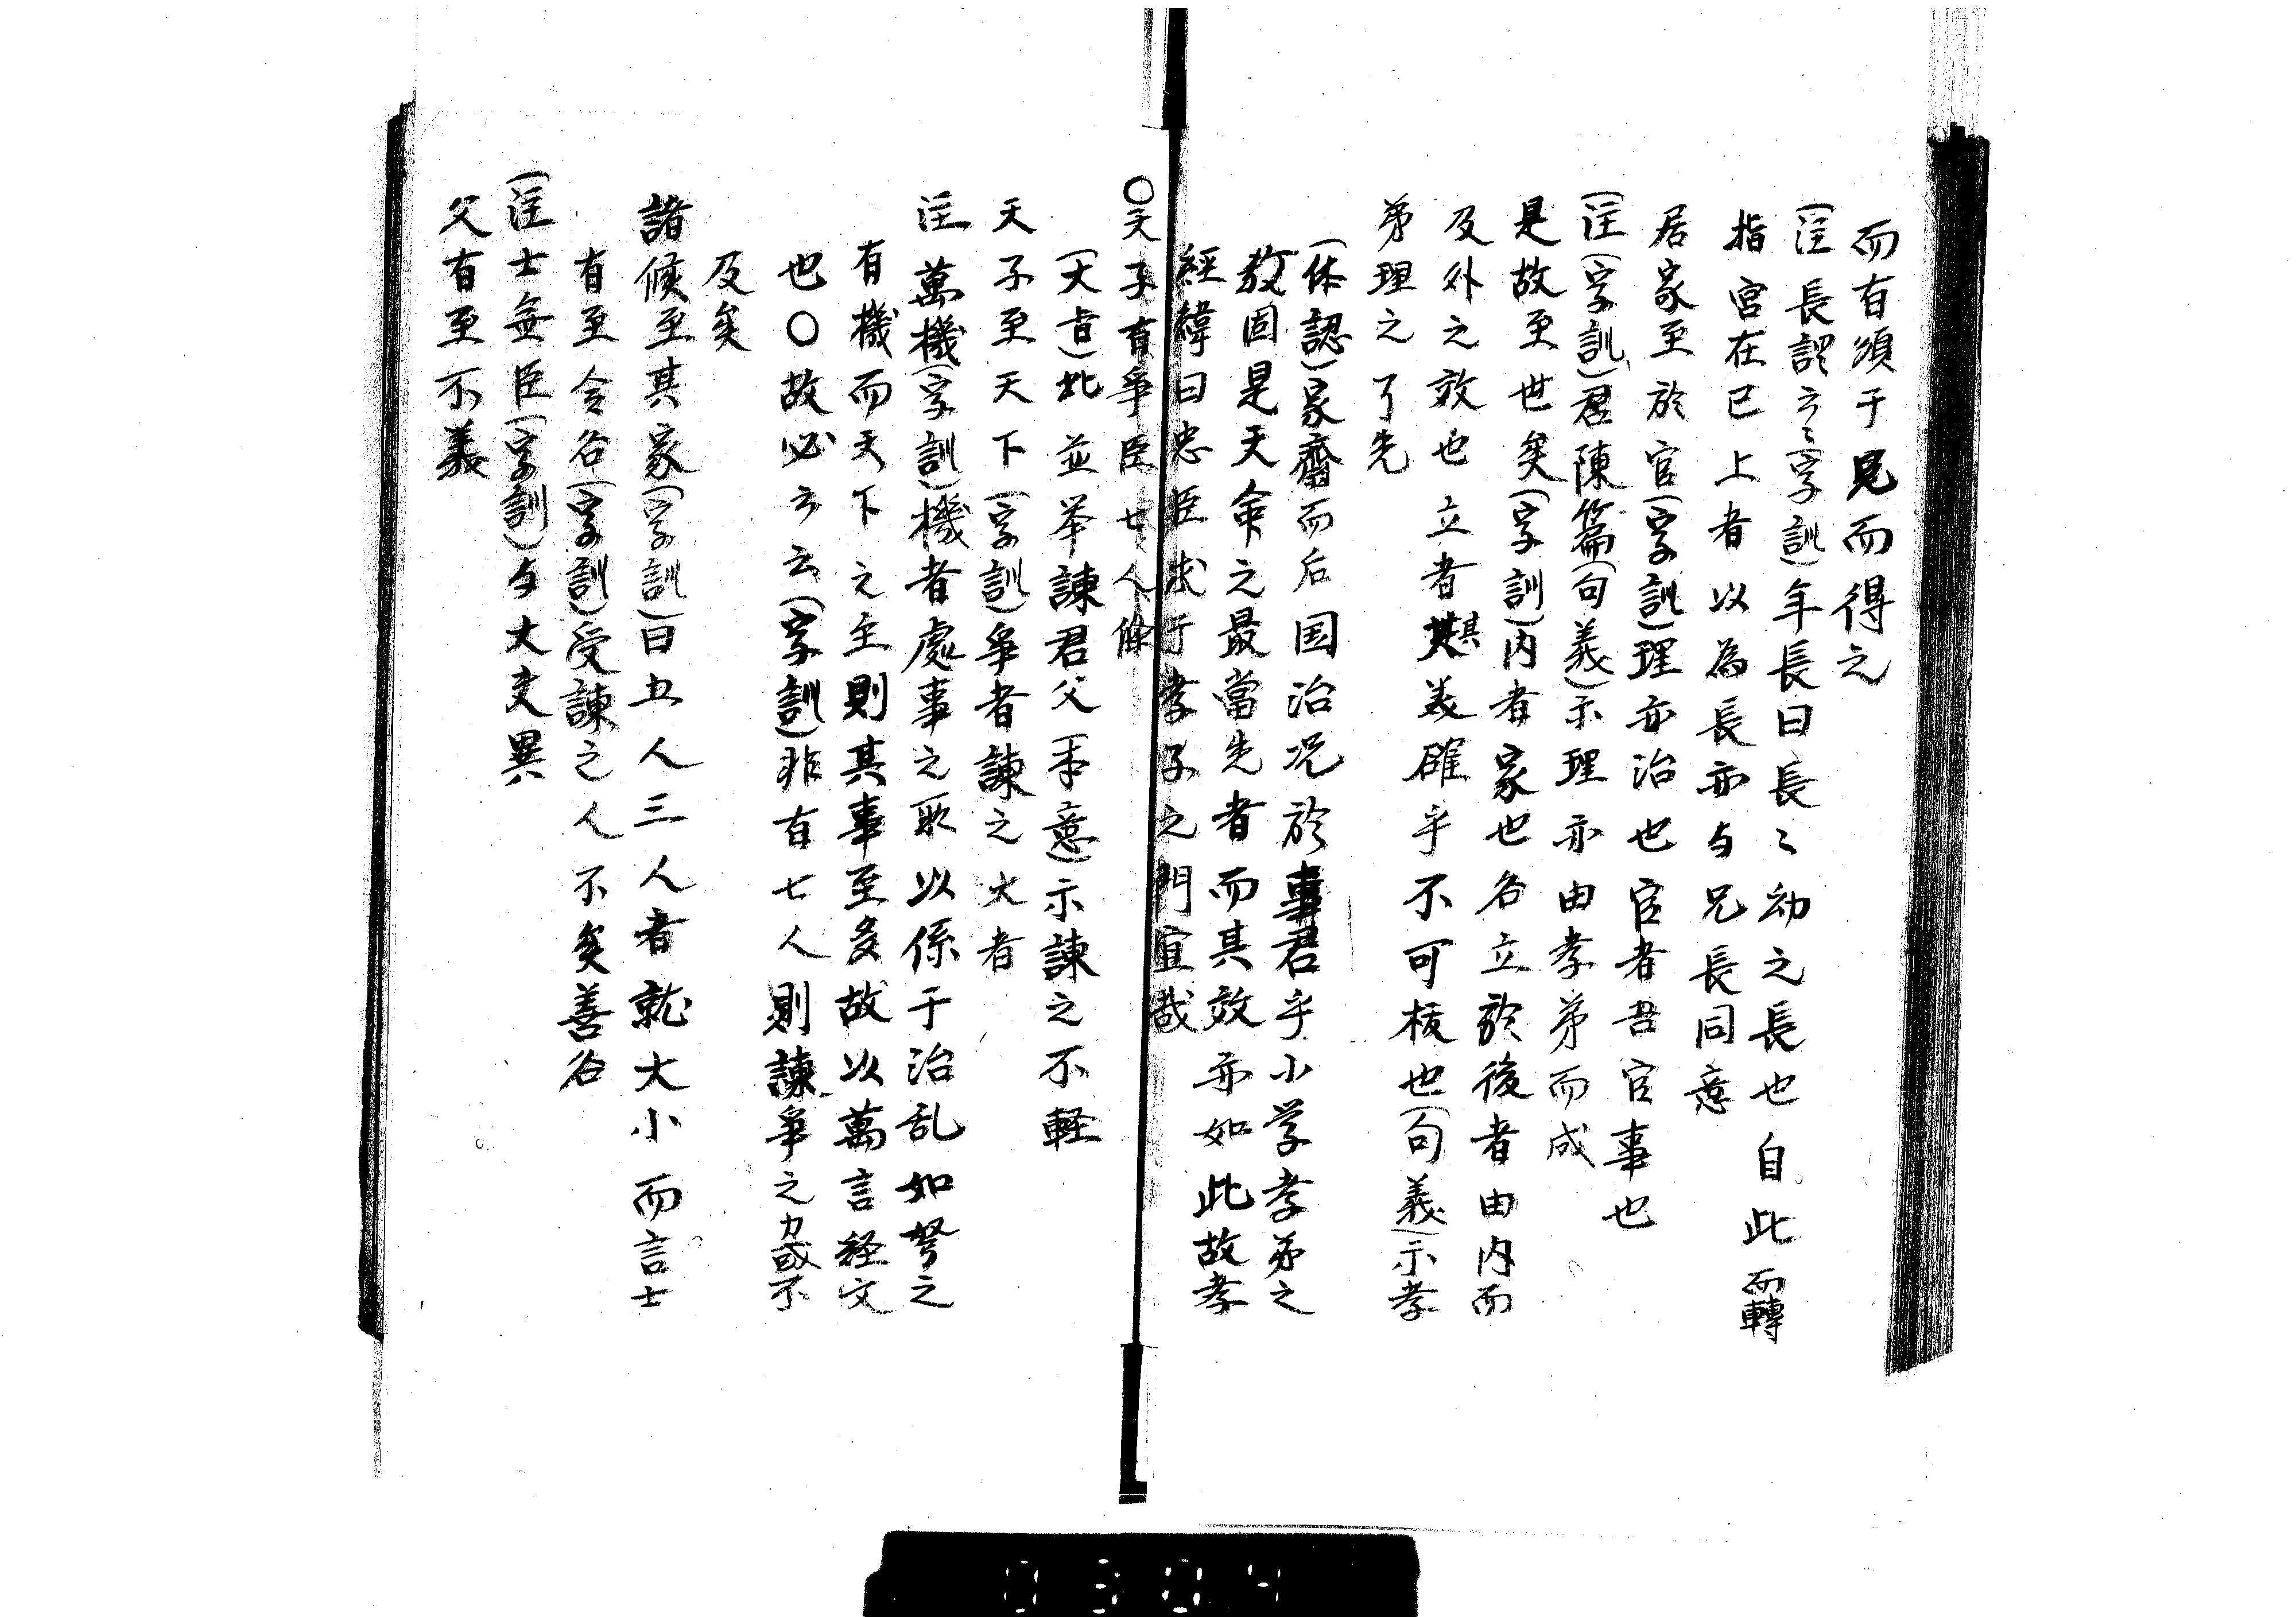 而有須于見而得之
(注長謂云〻(字訓)年長曰長〻幼之長也自此而轉
指宮在已上者以為長亦与兄長同意
居家至於官(字訓)理亦治也官者吾官官事也
(注(字訓)君陳篇(句義)示理亦由孝弟而成
是故至世矣(字訓)内者家也名立於後者由内而
及外之效也立者其義確乎不可抜也(句義)示孝
弟理之了先
(体認)家齋而后国治况於事君乎小学孝弟之
教固是天命之最當先者而其效亦如此故孝
經緯曰忠臣出于孝子之門宜哉
○天子有爭臣七人條
(大旨)此並举諫君父(事意)示諫之不軽
天子至天下(字訓)爭者諫之大者
注萬機(字訓)機者處事之取以係于治乱如弩之
有機而天下之主則其事至多故以萬言経文
也○故必云云(字訓)非有七人則諫爭之力或不
及矣
諸候至其家(字訓)曰五人三人者就大小而言士
有至令名(字訓)受諫之人不矣善名
(注士無臣(字訓)与大夫異
父有至不義
0304